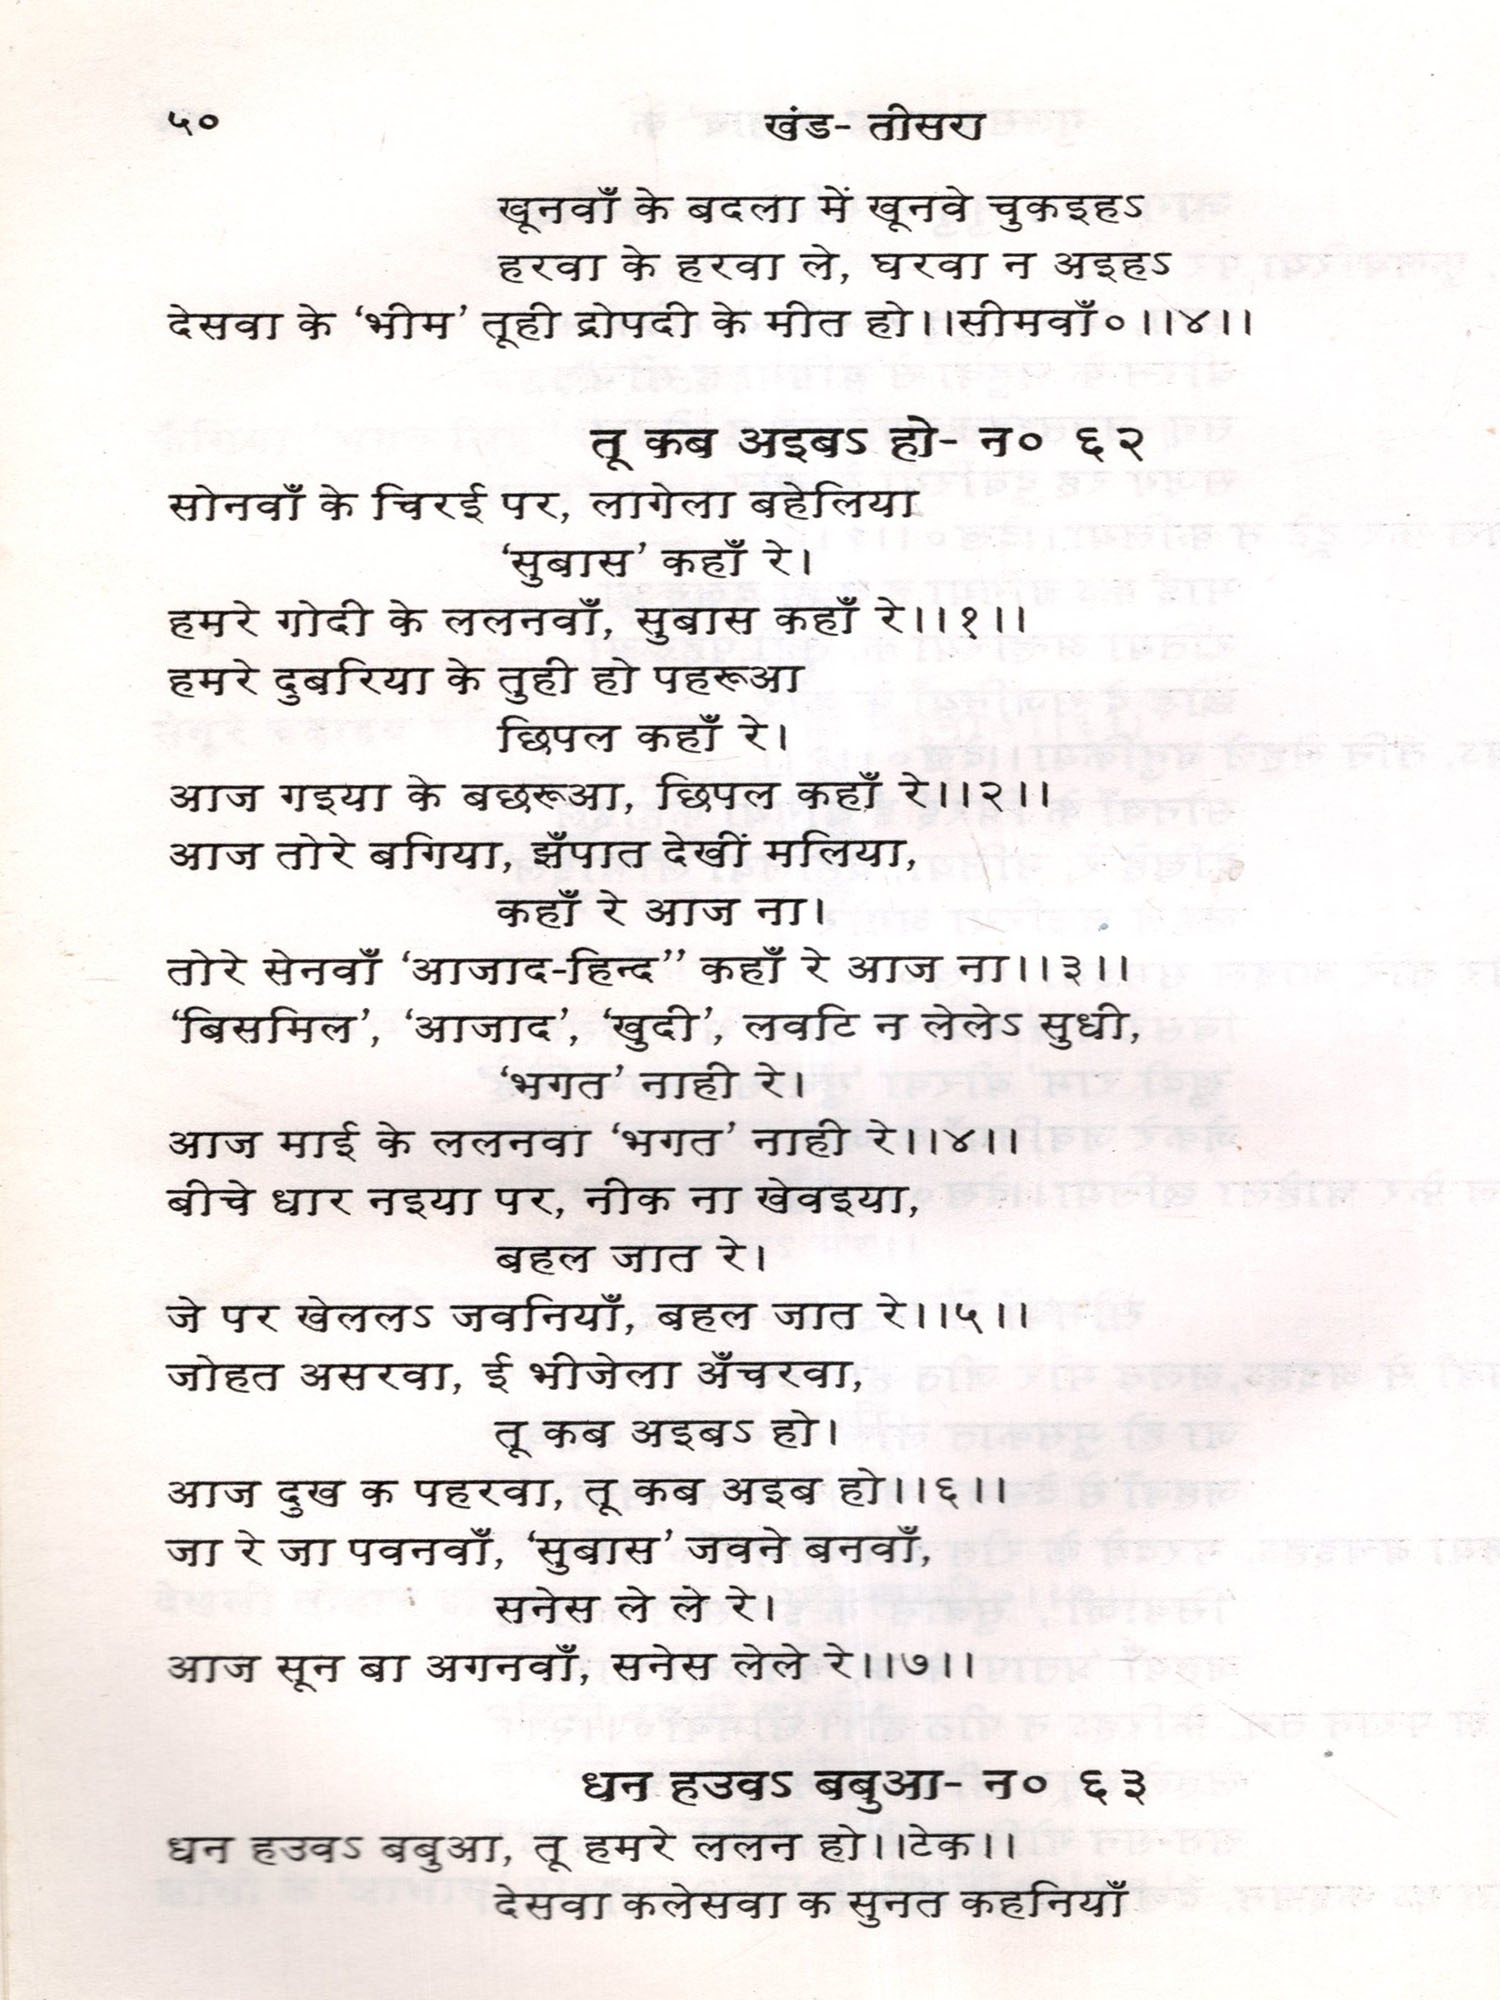 ५०
खंड- तीसरा
खूनवाँ के बदला में खूनवे चुकइहऽ
हरवा के हरवा ले, घरवा न अइहऽ
देसवा के ‘भीम’ तूही द्रोपदी के मीत हो।।सीमवाँ०।।४।।
तू कब अइबऽ हो- न० ६२
सोनवाँ के चिरई पर, लागेला बहेलिया
‘सुबास’ कहाँ रे।
हमरे गोदी के ललनवाँ, सुबास कहाँ रे।।१।।
हमरे दुबरिया के तुही हो पहरूआ
छिपल कहाँ रे।
आज गइया के बछरूआ, छिपल कहाँ रे।।२।।
आज तोरे बगिया, झँपात देखीं मलिया,
कहाँ रे आज ना।
तोरे सेनवाँ ‘आजाद-हिन्द” कहाँ रे आज ना।।३।।
‘बिसमिल’, ‘आजाद’, ‘खुदी’, लवटि न लेलेऽ सुधी,
‘भगत’ नाही रे।
आज माई के ललनवा ‘भगत’ नाही रे।।४।।
बीचे धार नइया पर, नीक ना खेवइया,
बहल जात रे।
जे पर खेललऽ जवनियाँ, बहल जात रे।।५।।
जोहत असरवा, ई भीजेला अँचरवा,
तू कब अइबऽ हो।
आज दुख क पहरवा, तू कब अइब हो।।६।।
जा रे जा पवनवाँ, ‘सुबास’ जवने बनवाँ,
सनेस ले ले रे।
आज सून बा अगनवाँ, सनेस लेले रे।।७।।
धन हउवऽ बबुआ- न० ६३
धन हउवऽ बबुआ, तू हमरे ललन हो।।टेक।।
देसवा कलेसवा क सुनत कहनियाँ